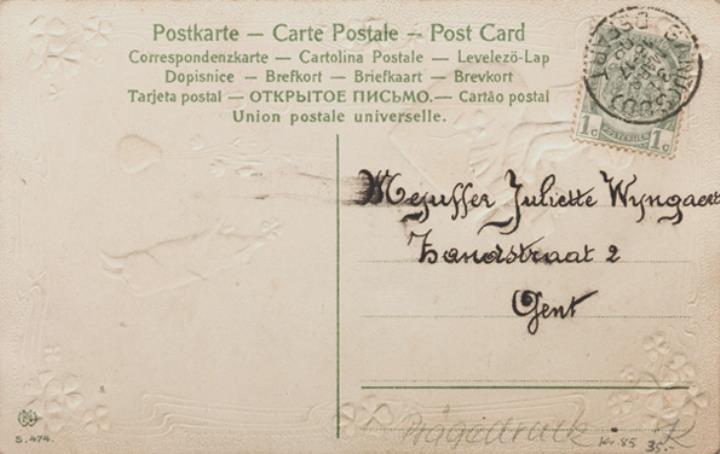 Postkarte — Carte Postale — Post Card
Correspondenzkarte — Cartolina Postale — Levelező-Lap
Dopisnice — Brefkort — Briefkaart — Brevkort
Tarjeta postal — ОТКРЫТОЕ ПИСЬМО. — Cartão postal
Union postale universelle.
1c 1c
Mejuffer Juliette Wyngaert
Zandstraat 2
Gent
Prägedruck
Kr. 85 35.- K
S. 474.